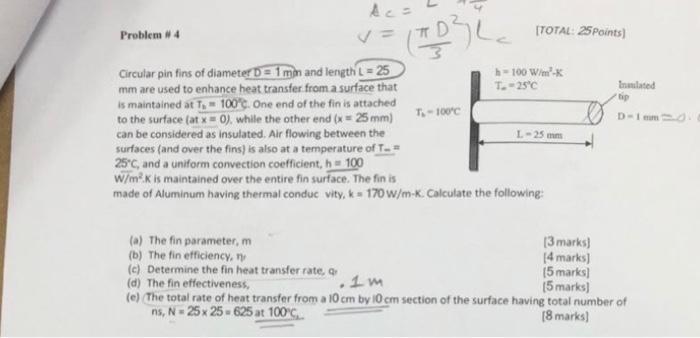 Ac =
Problem # 4
V = (πD²/3) Lc
[TOTAL: 25Points]
Circular pin fins of diameter D = 1 mm and length L = 25
mm are used to enhance heat transfer from a surface that
is maintained at Tb = 100°C. One end of the fin is attached
to the surface (at x = 0), while the other end (x = 25 mm)
can be considered as insulated. Air flowing between the
surfaces (and over the fins) is also at a temperature of T∞ =
25°C, and a uniform convection coefficient, h = 100
W/m².K is maintained over the entire fin surface. The fin is
made of Aluminum having thermal conduc vity, k = 170 W/m-K. Calculate the following:
h = 100 W/m²-K
T∞ = 25°C
Insulated
tip
Tb = 100°C
D = 1 mm
L = 25 mm
(a) The fin parameter, m [3 marks]
(b) The fin efficiency, ηf [4 marks]
(c) Determine the fin heat transfer rate, qf [5 marks]
(d) The fin effectiveness, [5 marks]
.1m
(e) The total rate of heat transfer from a 10 cm by 10 cm section of the surface having total number of
ns, N = 25 x 25 = 625 at 100°C. [8 marks]